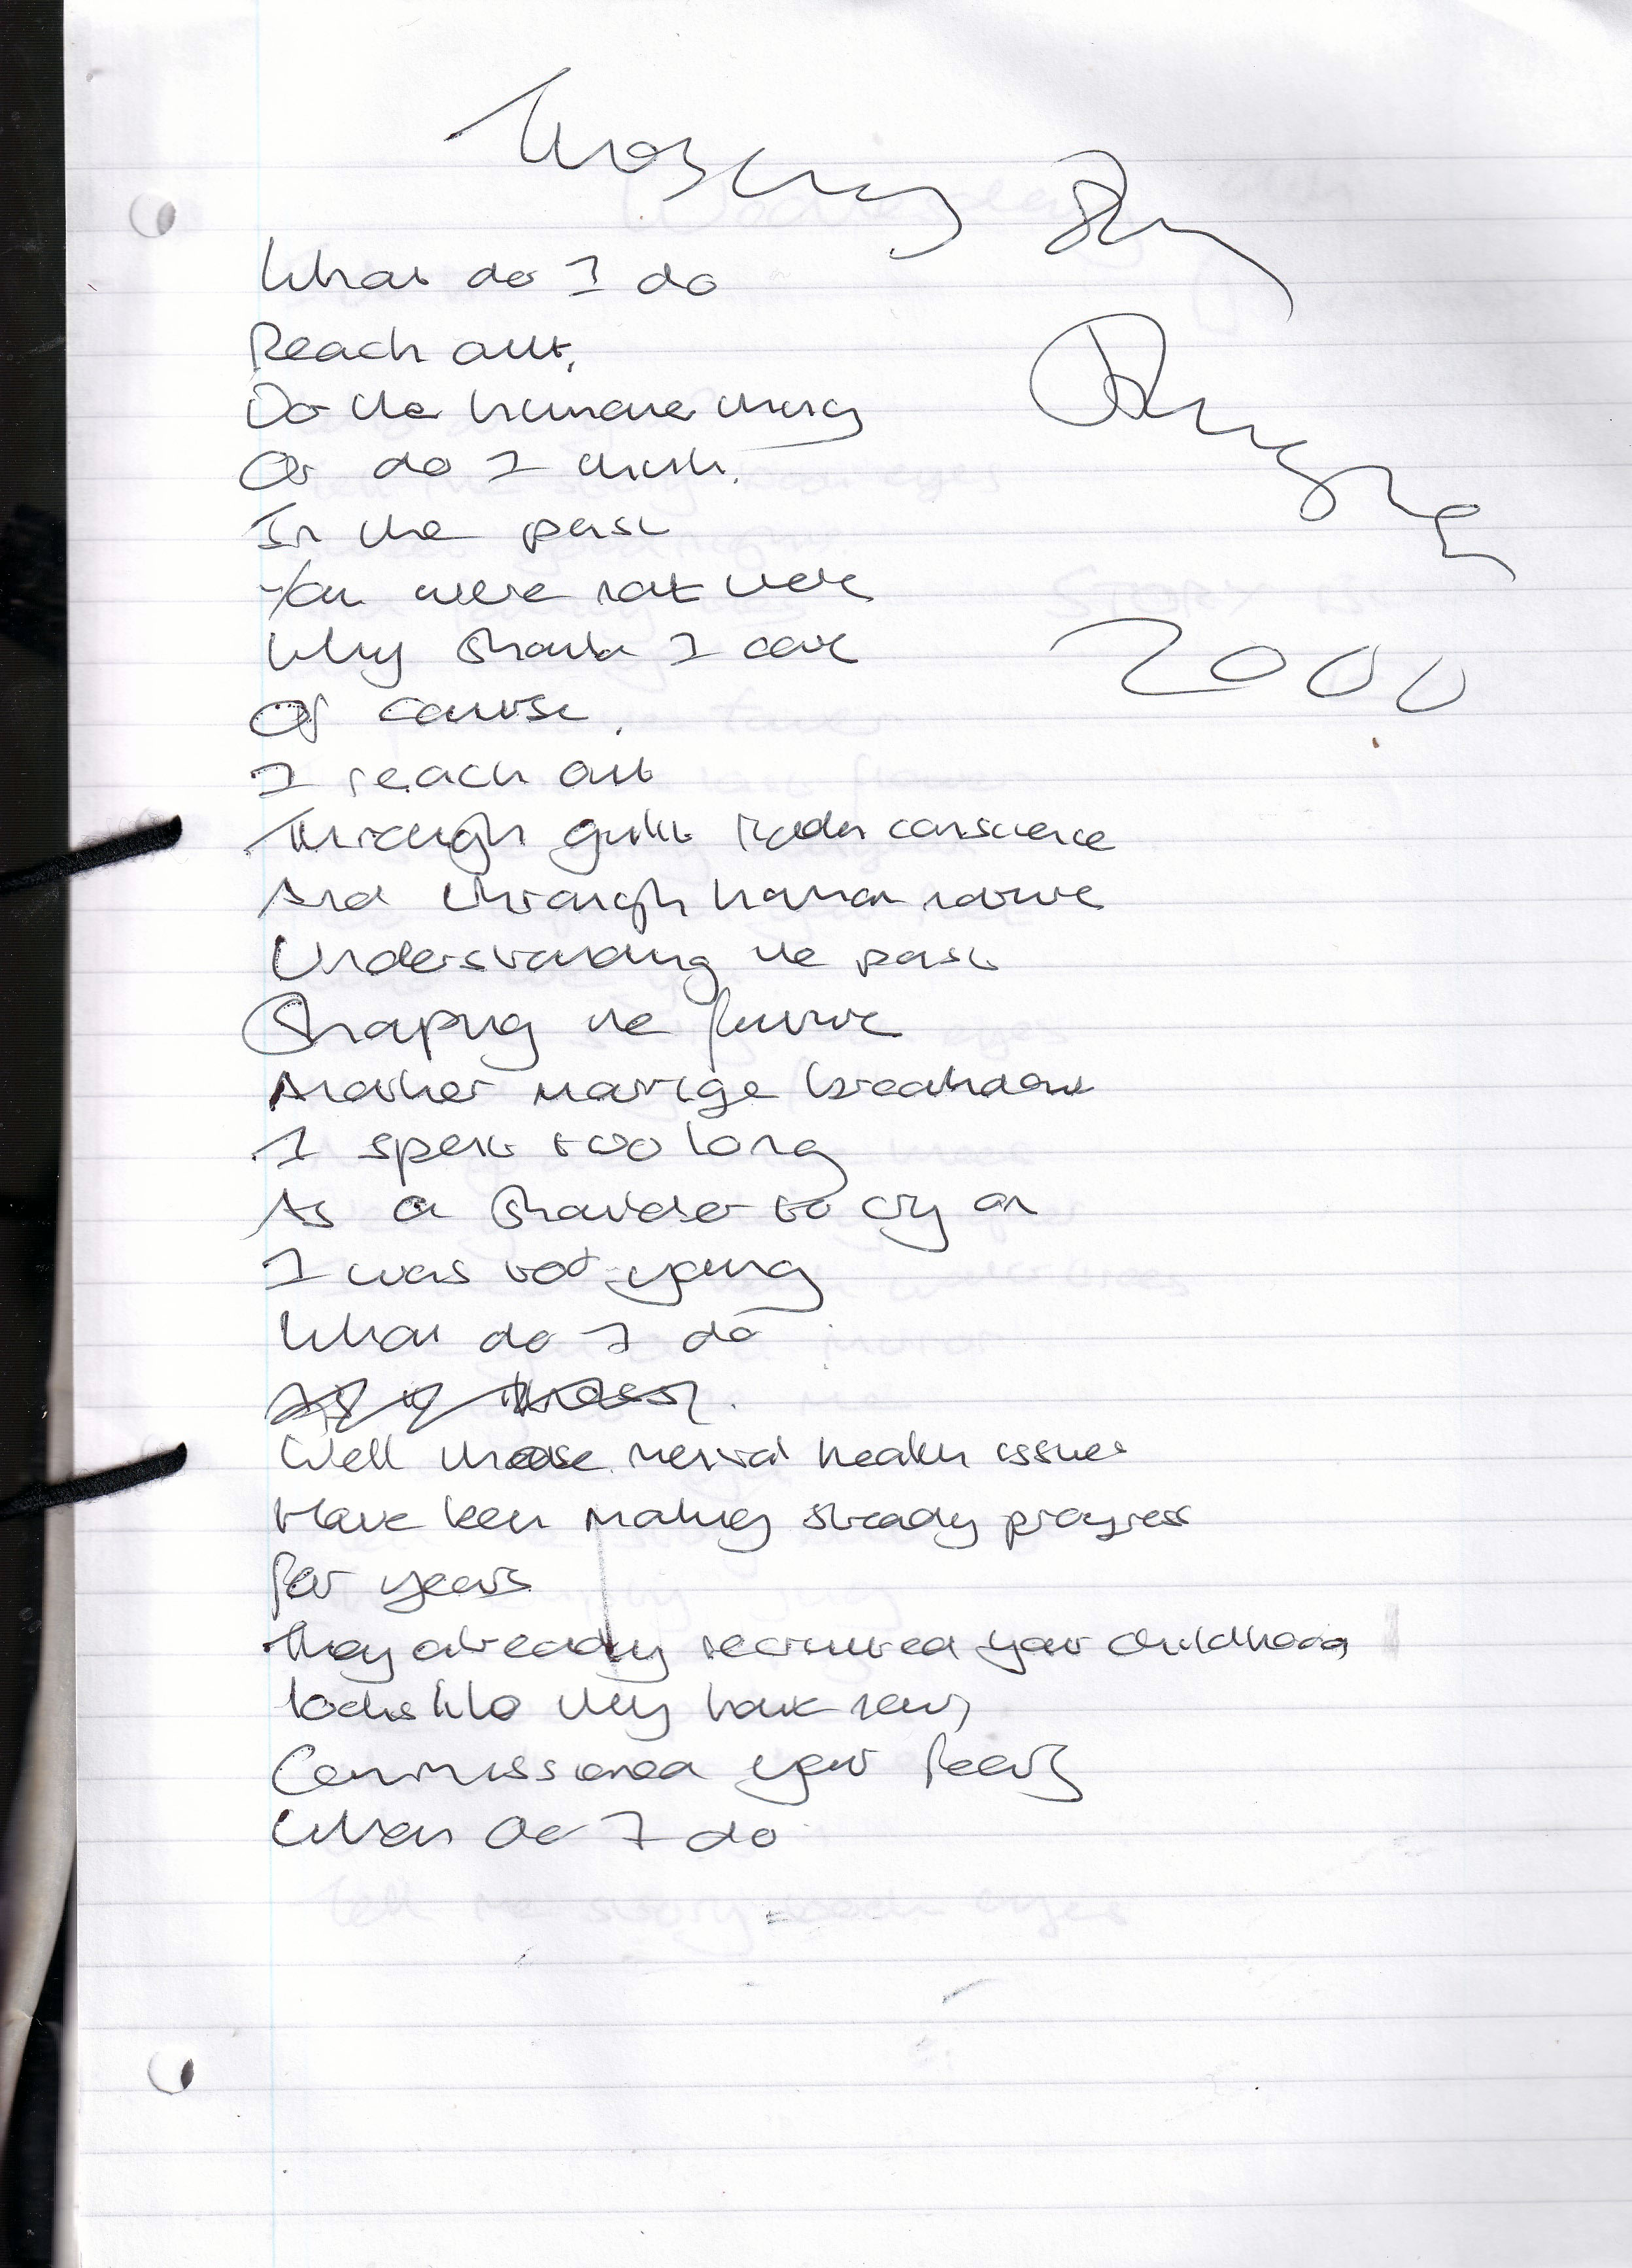 What do I do
Reach out,
Do the humane thing
Or do I think.
In the past
You were not there
Why should I care
Of course.
I reach out
Through guilt conscience
And through human nature
Understanding the past
Shaping the future
Another marrige breakdown
I spent too long
As a shoulder to cry on
I was too young
What do I do
Well these mental health issues
Have been making steady progress
for years
They already recruited your childhood
looks like they have now
Commissioned your
What do I do
2000